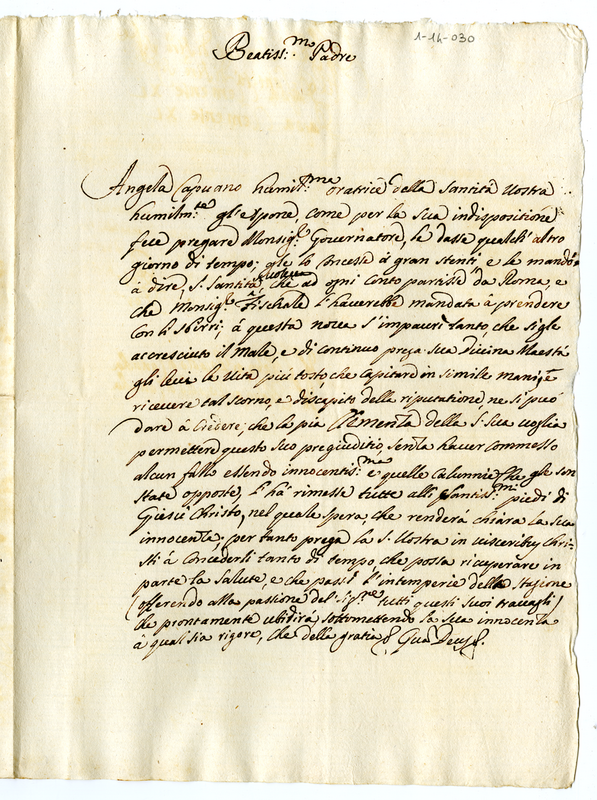 1-14-030
Beatiss:mo Padre
Angela Capuano humil:ma oratrice della Santità Vostra
humilm:te gl'espone, come per la sua indispositione
fece pregare Monsig:r Governatore, le dasse qualch'altro
giorno di tempo; gle lo concesse à gran stenti, e le mandò
à dire, S. Santità, voleva che ad ogni conto partisse da Roma, e
che Monsig:r Fischale l'haverebbe mandata à prendere
con li sbirri; à questa nova s'impaurì tanto che si gle
accresciuto il male, e di continuo prega sua Divina Maestà
gli levi la vita più tosto, che capitare in simile mani, e
ricevere tal scorno, e discapito della riputatione ne si può
dare à credere, che la pia Clemenza della S. Sua voglia
permettere questo suo pregiuditio, senza haver commesso
alcun fallo essendo innocentis:ma e quelle calunnie che gle son
state opposte, l'hà rimesse tutte alli Santiss:mi piedi di
Giesù Christo, nel quale spera, che renderà chiara la sua
innocenza; per tanto prega la S. Vostra in visceribus Chri-
sti à concederli tanto di tempo, che possa ricuperare in
parte la salute, e che passi l'intemperie della stagione
(offerendo alla passione del Sig:re tutti questi suoi travagli)
che prontamente ubidirà, sottomettendo la sua innocenza
à qual sia rigore, che della gratia Qua Deus